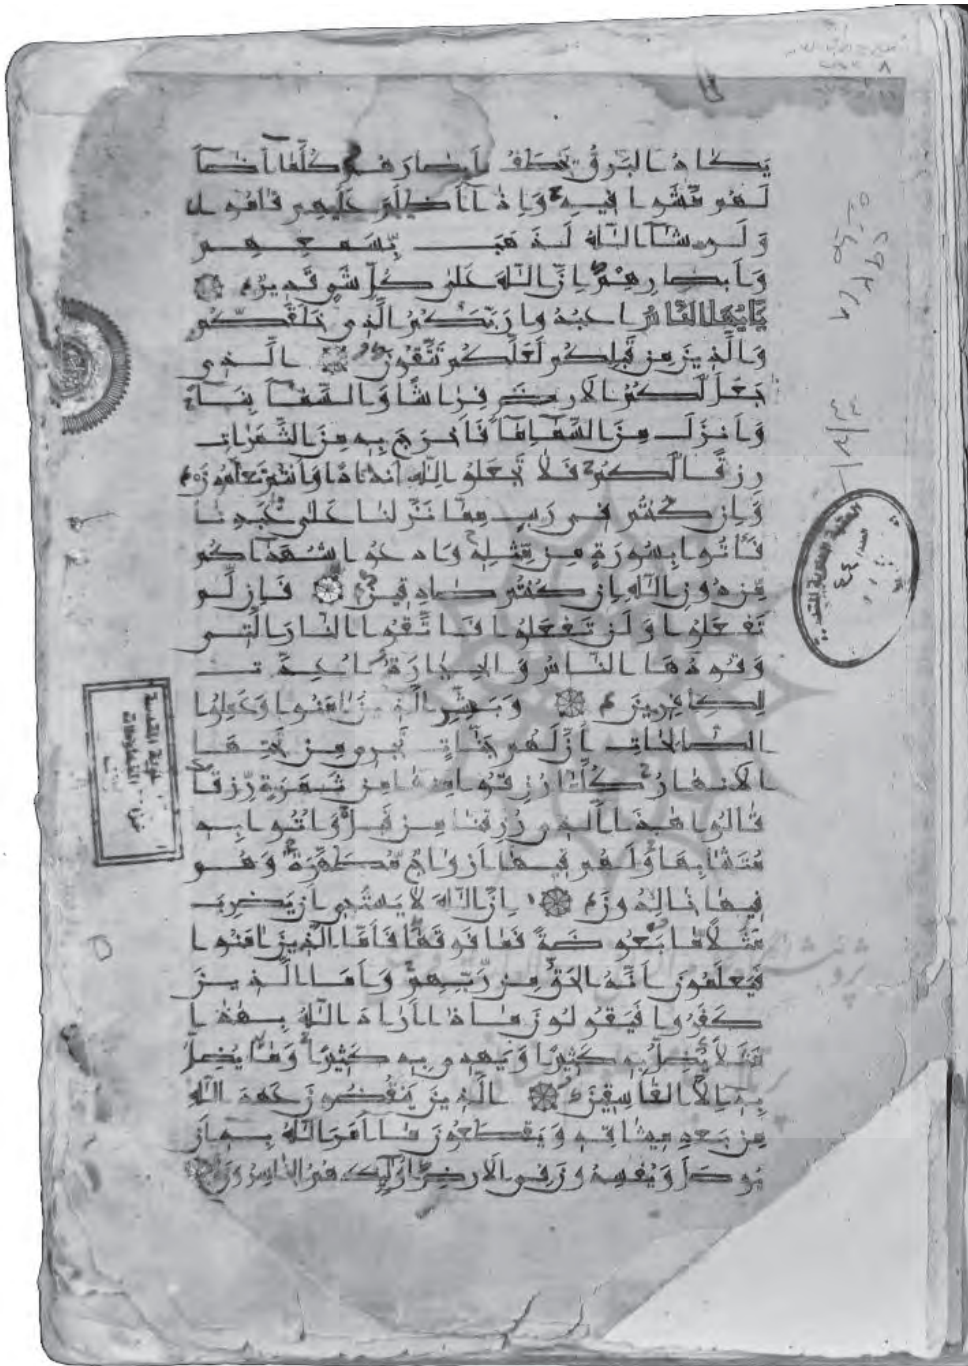 يَكَادُ الْبَرْقُ يَخْطَفُ أَبْصَارَهُمْ كُلَّمَا أَضَآءَ
لَهُمْ مَّشَوْا فِيهِ وَإِذَآ أَظْلَمَ عَلَيْهِمْ قَامُوا
وَلَوْ شَآءَ اللَّهُ لَذَهَبَ بِسَمْعِهِمْ
وَأَبْصَارِهِمْ إِنَّ اللَّهَ عَلَىٰ كُلِّ شَيْءٍ قَدِيرٌ
يَٰٓأَيُّهَا النَّاسُ اعْبُدُوا رَبَّكُمُ الَّذِي خَلَقَكُمْ
وَالَّذِينَ مِنْ قَبْلِكُمْ لَعَلَّكُمْ تَتَّقُونَ الَّذِي
جَعَلَ لَكُمُ الْأَرْضَ فِرَاشًا وَالسَّمَآءَ بِنَآءً
وَأَنْزَلَ مِنَ السَّمَآءِ مَآءً فَأَخْرَجَ بِهِ مِنَ الثَّمَرَاتِ
رِزْقًا لَّكُمْ فَلَا تَجْعَلُوا لِلَّهِ أَنْدَادًا وَأَنْتُمْ تَعْلَمُونَ
وَإِنْ كُنْتُمْ فِي رَيْبٍ مِّمَّا نَزَّلْنَا عَلَىٰ عَبْدِنَا
فَأْتُوا بِسُورَةٍ مِّنْ مِّثْلِهِ وَادْعُوا شُهَدَآءَكُمْ
مِّنْ دُونِ اللَّهِ إِنْ كُنْتُمْ صَادِقِينَ فَإِنْ لَّمْ
تَفْعَلُوا وَلَنْ تَفْعَلُوا فَاتَّقُوا النَّارَ الَّتِي
وَقُودُهَا النَّاسُ وَالْحِجَارَةُ أُعِدَّتْ
لِلْكَافِرِينَ وَبَشِّرِ الَّذِينَ آمَنُوا وَعَمِلُوا
الصَّالِحَاتِ أَنَّ لَهُمْ جَنَّاتٍ تَجْرِي مِنْ تَحْتِهَا
الْأَنْهَارُ كُلَّمَا رُزِقُوا مِنْهَا مِنْ ثَمَرَةٍ رِّزْقًا
قَالُوا هَٰذَا الَّذِي رُزِقْنَا مِنْ قَبْلُ وَأُتُوا بِهِ
مُتَشَابِهًا وَلَهُمْ فِيهَآ أَزْوَاجٌ مُّطَهَّرَةٌ وَهُمْ
فِيهَا خَالِدُونَ إِنَّ اللَّهَ لَا يَسْتَحْيِي أَنْ يَضْرِبَ
مَثَلًا مَّا بَعُوضَةً فَمَا فَوْقَهَا فَأَمَّا الَّذِينَ آمَنُوا
فَيَعْلَمُونَ أَنَّهُ الْحَقُّ مِنْ رَّبِّهِمْ وَأَمَّا الَّذِينَ
كَفَرُوا فَيَقُولُونَ مَاذَآ أَرَادَ اللَّهُ بِهَٰذَا
مَثَلًا يُضِلُّ بِهِ كَثِيرًا وَيَهْدِي بِهِ كَثِيرًا وَمَا يُضِلُّ
بِهِ إِلَّا الْفَاسِقِينَ الَّذِينَ يَنْقُضُونَ عَهْدَ اللَّهِ
مِنْ بَعْدِ مِيثَاقِهِ وَيَقْطَعُونَ مَآ أَمَرَ اللَّهُ بِهِ أَنْ
يُوصَلَ وَيُفْسِدُونَ فِي الْأَرْضِ أُولَٰئِكَ هُمُ الْخَاسِرُونَ